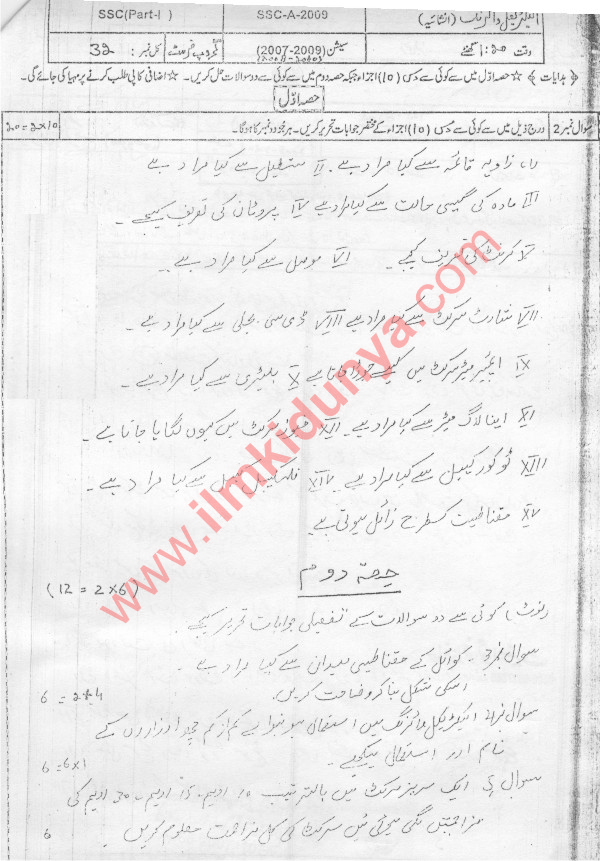 SSC(Part-I) SSC-A-2009 الیکٹریکل وائرنگ (انشائیہ)
وقت 1:20 گھنٹے سیشن (2007-2009) گروپ فرسٹ کل نمبر: 32
﴿ ہدایات ﴾ ☆ حصہ اوّل میں سے کوئی سے دس (10) اجزاء جبکہ حصہ دوم میں سے کوئی سے دو سوالات حل کریں۔ ☆ اضافی کاپی طلب کرنے پر مہیا کی جائے گی۔
حصہ اوّل
سوال نمبر 2 درج ذیل میں سے کوئی سے دس (10) اجزاء کے مختصر جوابات تحریر کریں۔ ہر جزو دو نمبر کا ہوگا۔ 20 = 2x10
I زاویہ قائمہ سے کیا مراد ہے۔ II مستطیل سے کیا مراد ہے
III مادہ کی گیسی حالت سے کیا مراد ہے IV پروٹان کی تعریف کیجیے۔
V کرنٹ کی تعریف کیجیے۔ VI موصل سے کیا مراد ہے۔
VII شارٹ سرکٹ سے کیا مراد ہے VIII ڈی سی بجلی سے کیا مراد ہے۔
IX ایمپیئر میٹر سرکٹ میں کیسے جوڑا جاتا ہے X بیٹری سے کیا مراد ہے۔
XI اینالاگ میٹر سے کیا مراد ہے۔ XII فیوز سرکٹ میں کیوں لگایا جاتا ہے۔
XIII ٹو کور کیبل سے کیا مراد ہے XIV فلیکسیبل کیبل سے کیا مراد ہے۔
XV مقناطیست کسطرح زائل ہوتی ہے
حصہ دوم
(12 = 2x6)
(نوٹ) کوئی سے دو سوالات کے تفصیلی جوابات تحریر کیجیے۔
سوال نمبر 3۔ کوائل کے مقناطیسی میدان سے کیا مراد ہے۔
اسکی شکل بنا کر وضاحت کریں۔ 6 = 2+4
سوال نمبر 4 الیکٹریکل وائرنگ میں استعمال ہونیوالے کم از کم چھ اوزاروں کے
نام اور استعمال لکھیے۔ 6 = 6x1
سوال 5 ایک سریز سرکٹ میں بالترتیب 10 اوہم۔ 15 اوہم۔ 30 اوہم کی
مزاحمتیں لگی ہوئی ہیں سرکٹ کی کل مزاحمت معلوم کریں 6
www.ilmkidunya.com